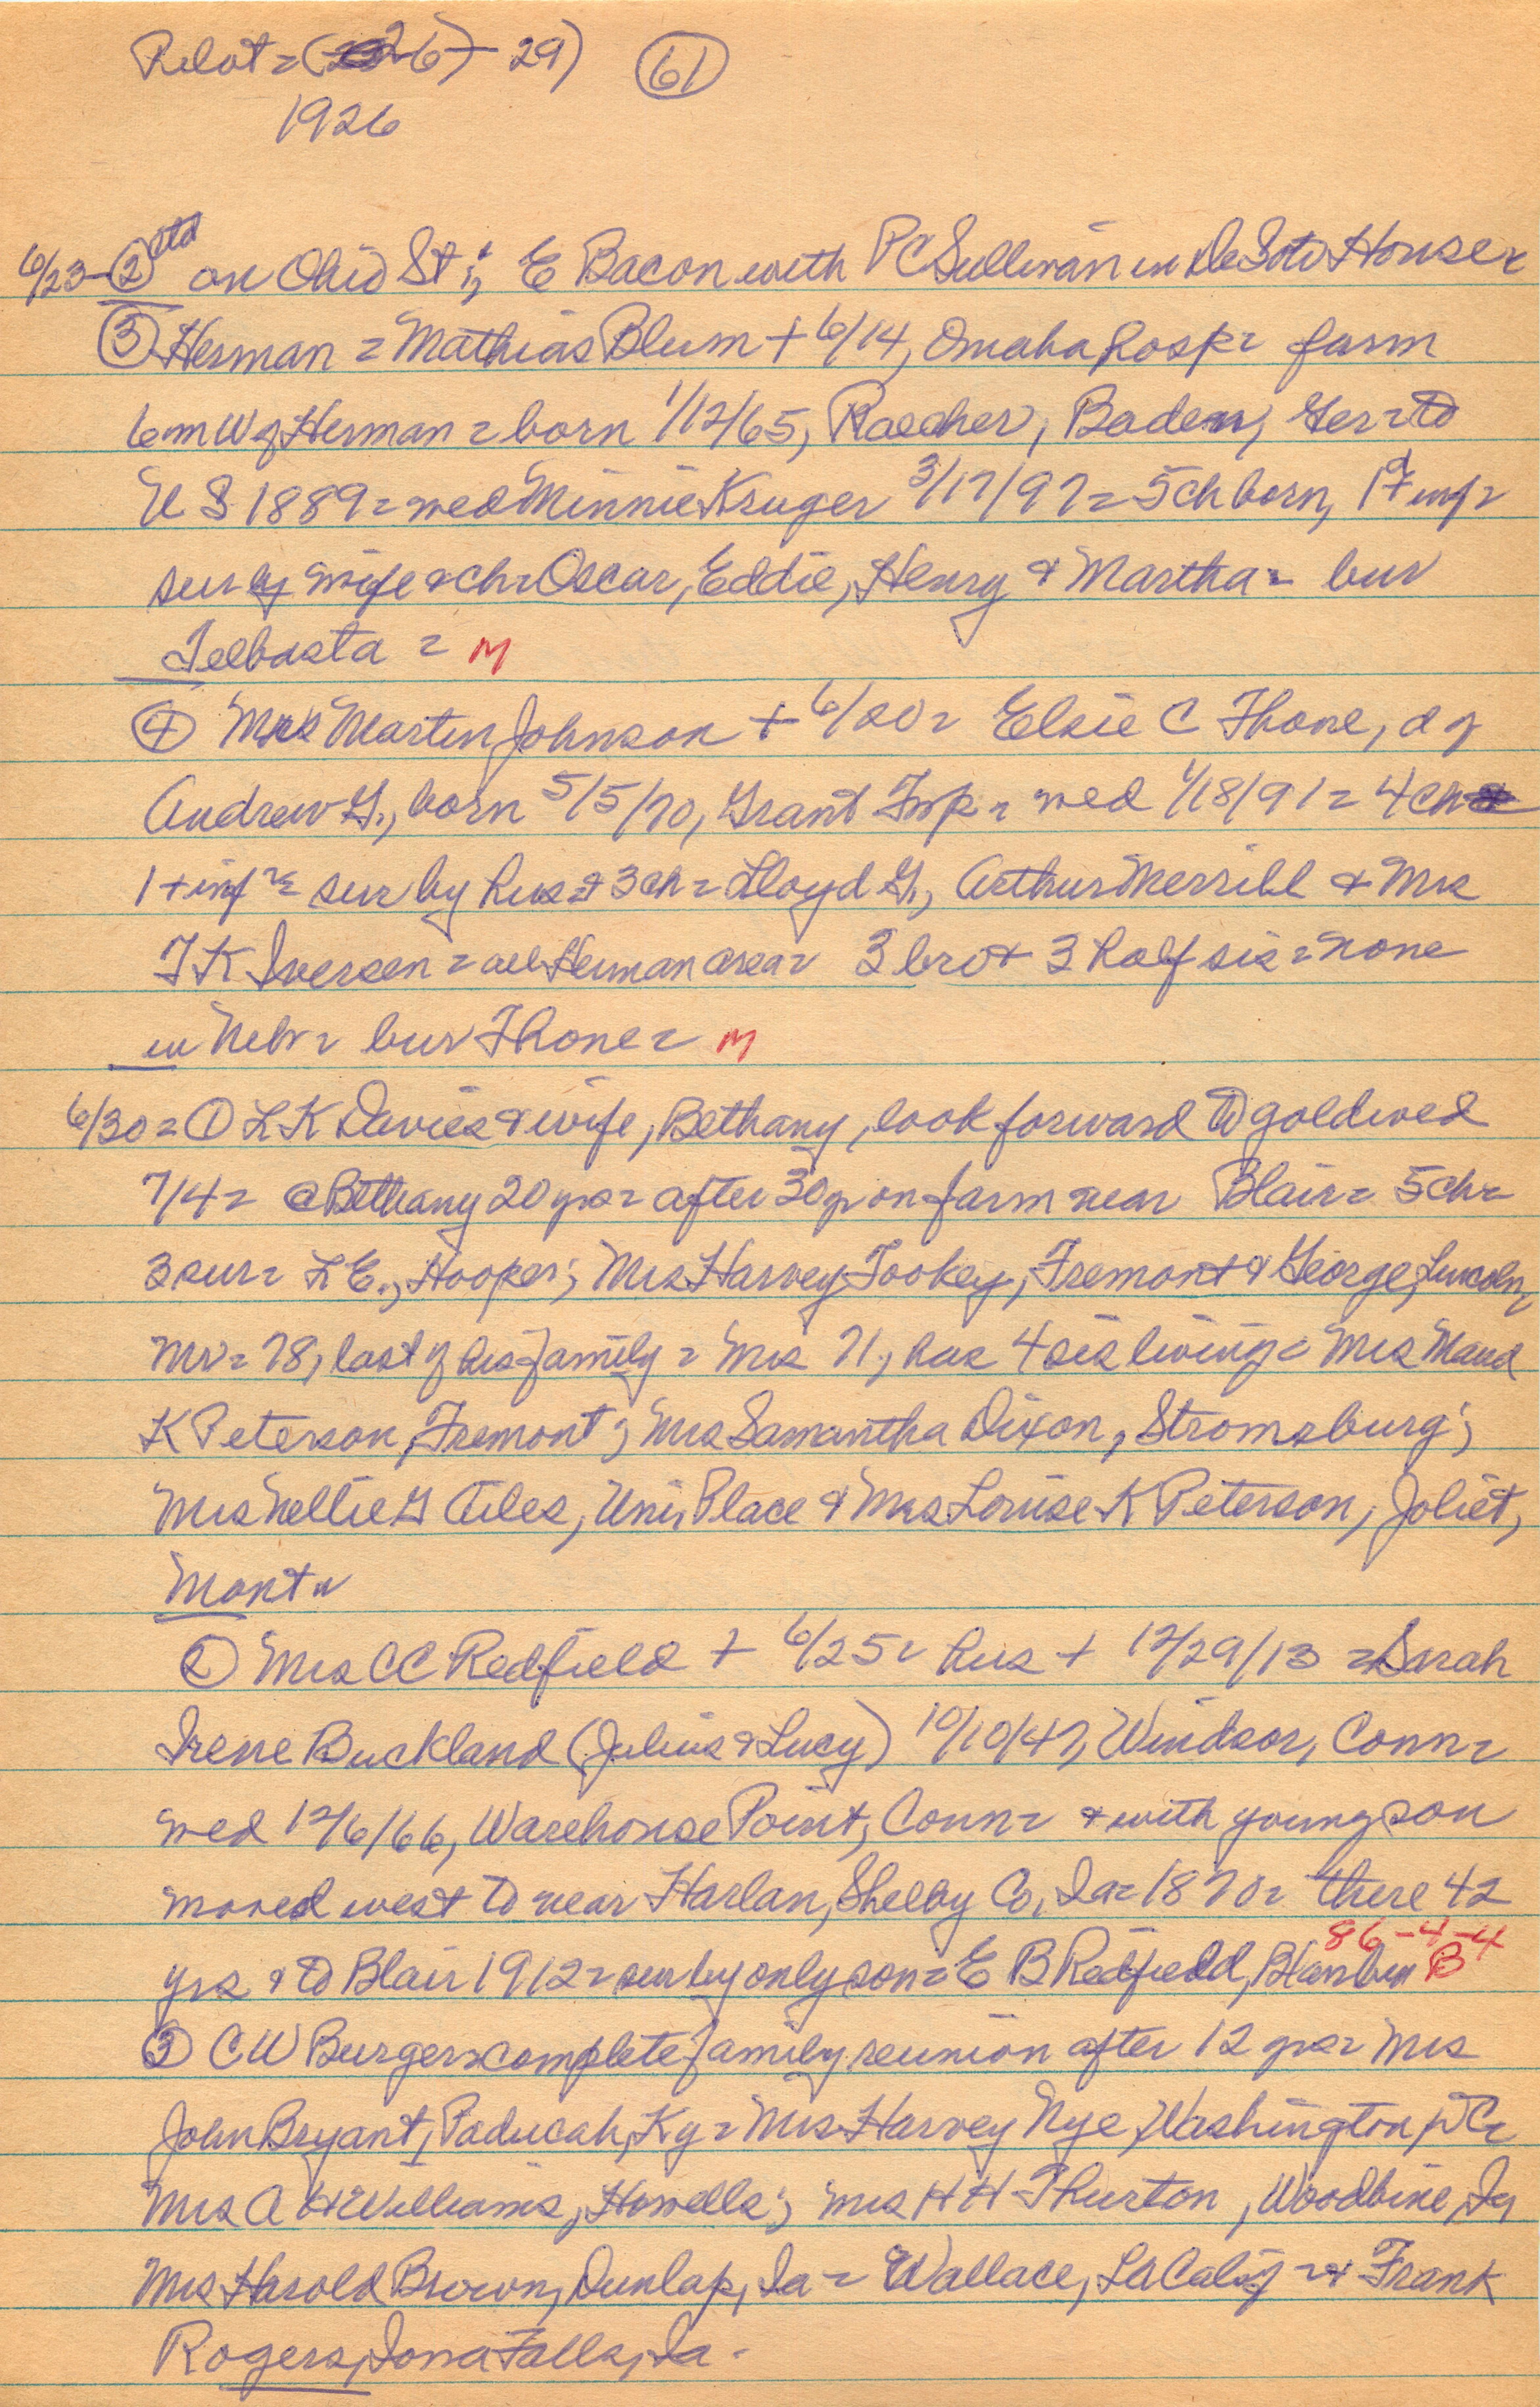 Pilot = (26) - 29) 61
1926
6/23 - 2 ctd on Ohio St; E Bacon with PC Sullivan in DeSoto House =
3 Herman = Mathias Blum + 6/14, Omaha hosp = farm
6 m W of Herman = born 1/12/65, Raecher, Baden, Ger = to
U S 1889 = wed Minnie Kruger 3/17/97 = 5 ch born, 1 + inf =
sur by wife & ch = Oscar, Eddie, Henry & Martha = bur
Telbasta = M
4 Mrs Martin Johnson + 6/20 = Elsie C Thone, d of
Andrew G., born 5/5/70, Grant Twp = wed 1/18/91 = 4 ch =
1 + inf = sur by hus & 3 ch = Lloyd G., Arthur Merrill & Mrs
T K Iversen = all Herman area = 3 bro + 3 half sis = none
in Nebr = bur Thone = M
6/30 = 1 L K Davies & wife, Bethany, look forward to gold wed
7/4 = @ Bethany 20 yrs = after 30 yr on farm near Blair = 5 ch =
3 sur = L E., Hooper; Mrs Harvey Tookey, Fremont & George, Lincoln,
Mr = 78, last of his family = Mrs 71, has 4 sis living = Mrs Maud
K Peterson, Fremont; Mrs Samantha Dixon, Stromsburg;
Mrs Nellie G Ailes, Uni, Place & Mrs Louise K Peterson, Joliet,
Mont =
2 Mrs CC Redfield + 6/25 = hus + 12/29/13 = Sarah
Irene Buckland (Julius & Lucy) 10/10/47, Windsor, Conn =
wed 12/6/66, Warehouse Point, Conn = & with young son
moved west to near Harlan, Shelby Co, Ia = 1870 = there 42
yrs & to Blair 1912 = sur by only son = E B Redfield, Blair bur B
86-4-4
3 CW Burger = complete family reunion after 12 yrs = Mrs
John Bryant, Paducah, Ky = Mrs Harvey Nye, Washington, DC =
Mrs A H Williams, Howells; Mrs H H Thurton, Woodbine, Ia
Mrs Harold Brown, Dunlap, Ia = Wallace, LA Calif = & Frank
Rogers, Iowa Falls, Ia -